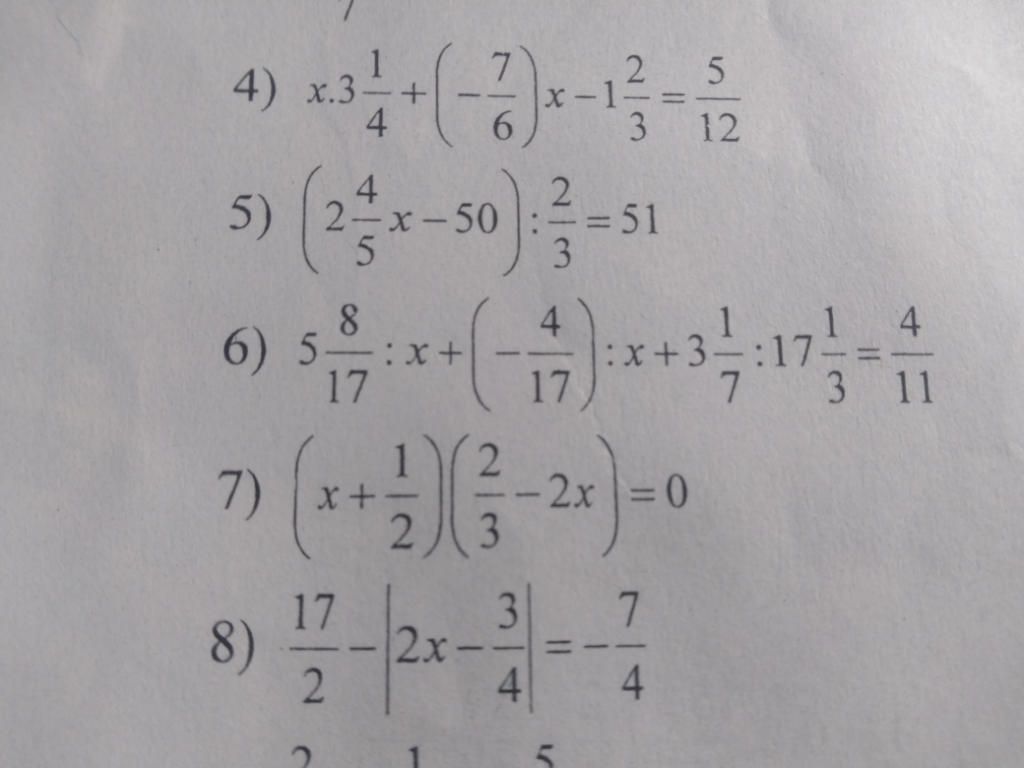 4) x.3 1/4 + (− 7/6) x − 1 2/3 = 5/12
5) (2 4/5 x − 50) : 2/3 = 51
6) 5 8/17 : x + (− 4/17) : x + 3 1/7 : 17 1/3 = 4/11
7) (x + 1/2)(2/3 − 2x) = 0
8) 17/2 − |2x − 3/4| = − 7/4